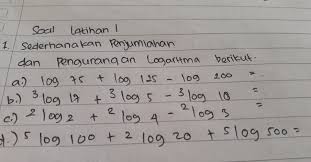 Soal Latihan 1
1. Sederhanakan Penjumlahan
dan Pengurangan Logaritma berikut.
a.) log 75 + log 125 - log 200 =
b.) ³log 17 + ³log 5 - ³log 18 =
c.) ²log 2 + ²log 4 - ²log 3 =
d.) 5 log 100 + 2 log 20 + 5 log 500 =